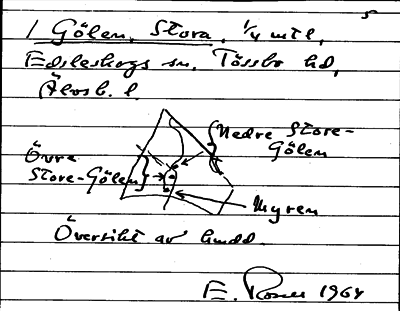 5
1 Gölen, Stora, 1/4 mtl,
Edsleskogs sn. Tössbo hd,
Älvsb. l.
Nedre Store-
Gölen
Övre
Store-Gölen
Myren
Översikt av
E. 1964